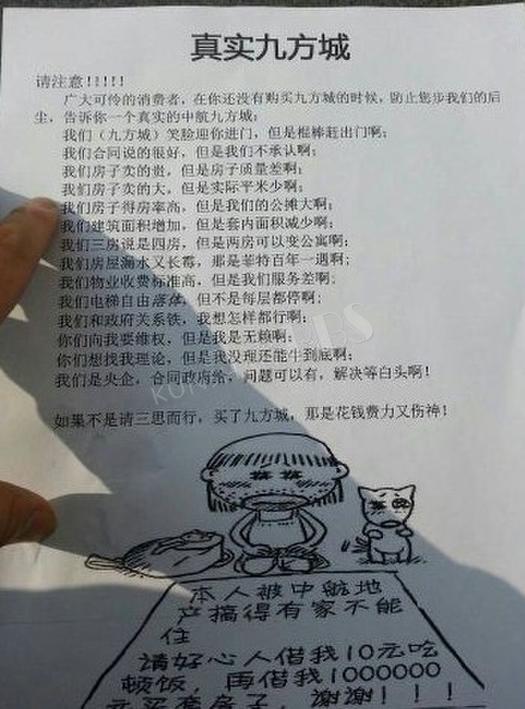 真实九方城
请注意!!!!!!
广大可怜的消费者，在你还没有购买九方城的时候，防止您步我们的后
尘，告诉你一个真实的中航九方城：
我们（九方城）笑脸迎你进门，但是棍棒赶出门啊；
我们合同说的很好，但是我们不承认啊；
我们房子卖的贵，但是房子质量差啊；
我们房子卖的大，但是实际平米少啊；
我们房子得房率高，但是我们的公摊大啊；
我们建筑面积增加，但是套内面积减少啊；
我们三房说是四房，但是两房可以变公寓啊；
我们房屋漏水又长霉，那是菲特百年一遇啊；
我们物业收费标准高，但是我们服务差啊；
我们电梯自由落体，但不是每层都停啊；
我们和政府关系铁，我想怎样都行啊；
你们向我要维权，但是我是无赖啊；
你们想找我理论，但是我没理还能牛到底啊；
我们是央企，合同政府给，问题可以有，解决等白头啊！
如果不是请三思而行，买了九方城，那是花钱费力又伤神！
本人被中航地
产搞得有家不能
住
请好心人借我10元吃
顿饭，再借我1000000
元买套房子，谢谢！！！